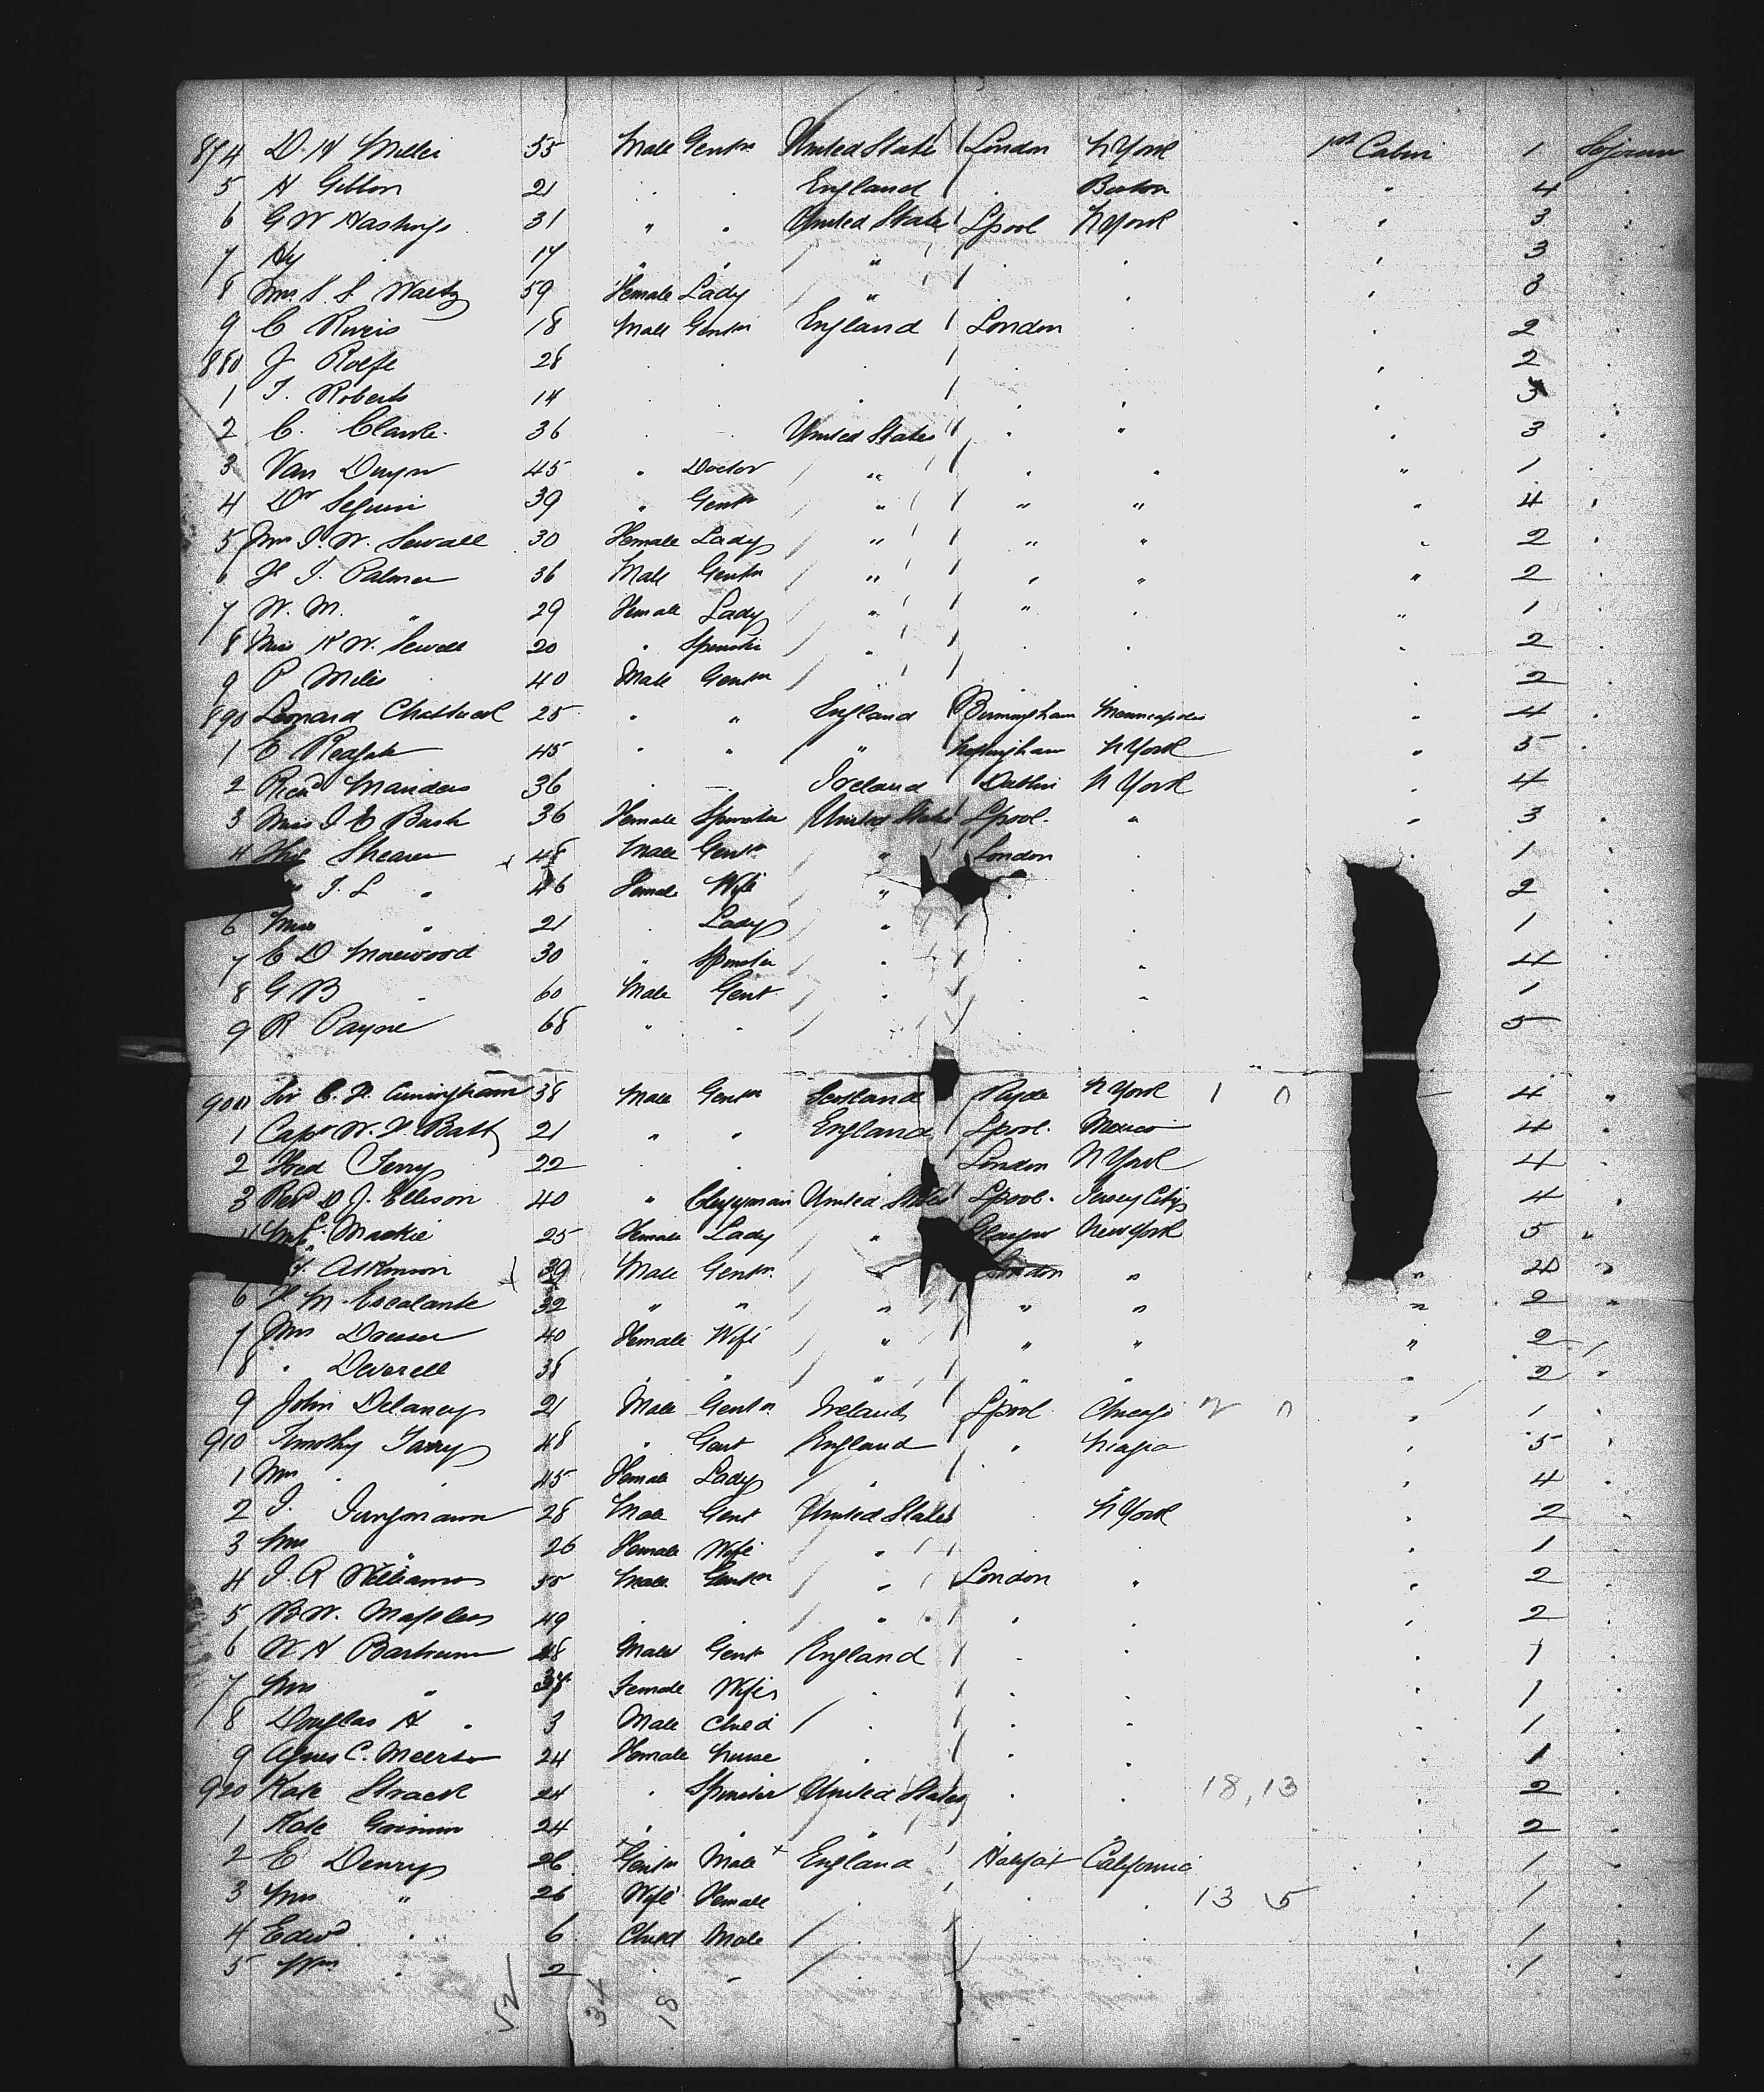 874 D. H Miller 55 Male Gentn United State London N York 1st Cabin 1 Sojourn
5 H Gibbon 21 . . England . Boston " 4 .
6 G W Hastings 31 " " United State Lpool N York " 3 .
7 Hy . 17 " " " . . " 3 .
8 Mrs S. S. Waltz 59 Female Lady " . . " 3 .
9 C Rivis 18 Male Gentn England London . . 2 .
880 J Rolfe 28 . . . . . . 2 .
1 T. Roberts 14 . . . . . . 3 .
2 C. Clarke 36 . . United States " " . 3 .
3 Van Duyn 45 " Doctor " . " " 1 .
4 Dr Seguin 39 " Gentn " " " " 4 .
5 Mrs I. W. Sewall 30 Female Lady " " " " 2 .
6 I. Palmer 36 Male Gentn " " " " 2 .
7 W. M. " 29 Female Lady " " . " 1 .
8 Miss H W. Sewall 20 " Spinster " . . . 2 .
9 P Miles 40 Male Gentn " . . . 2 .
890 Leonard Chattock 25 " " England Birmingham Minneapolis " 4 .
1 E Redgate 45 " " " Nottingham N York " 5 .
2 Richd Manders 36 . — Ireland Dublin N York . 4 .
3 Miss I E Bush 36 Female Spinster United State Lpool. " " 3 .
4 Shearer 48 Male Gentn " London . . 1 .
I. L " 46 Female Wife " . . 2 .
6 Miss " 21 . Lady " . 1 .
7 E D Morewood 30 " Spinster " . " 4 .
8 G B " 60 Male Gent . " 1 .
9 R Payne 68 " " . . 5
900 Sir C. F. Cuningham 38 Male Gentn Scotland Ryde N York 1 0 4 "
1 Capt W. F. Batt 21 " " England Lpool. Mexico 4 .
2 Fred Terry 22 . . . London N York 4 .
3 Revd D J. Ellison 40 " Clergyman United States Lpool. Jersey City 4 .
Mackie 25 Female Lady " Glasgow New York 5 "
Atkinson 39 Male Gentn. " London " " "
6 F. M. Escalante 32 " " " " " " 2 "
7 Mrs Dresser 40 Female Wife " " " " 2
8 " Deverell 38 " " " " " " 2 "
9 John Delaney 21 Male Gentn Ireland Lpool Chicago 2 0 " 1 .
910 Timothy Tarry 48 " Gent England " " 5 .
1 Mrs . 45 Female Lady . . " 4 .
2 I. Jungmann 28 Male Gent United States . N York . 2 .
3 Mrs " 26 Female Wife " . . . 1 .
4 I. R Williams 35 Male Gentn " London " " 2 .
5 B W. 49 . . " . . " 2 .
6 W H Bartrum 48 Male Gent England . . . 1 .
7 Mrs " Female Wife . . . . 1 .
8 Douglas H " 3 Male Child . . " " 1 .
9 Agnes C. 24 Female Nurse . . . . 1 .
920 Kate Strack 24 " Spinster United States . . 18, 13 . 2 .
1 Kate 24 . . " " " . 2 .
2 E Denry 26 Gentn Male England Halifax California . 1 .
3 Mrs " 26 Wife Female . . . 13 5 . 1 .
4 Edwd " 6 Child Male . . . . 1 .
5 Wm " 2 . " . . . . 1 .
52 34 18